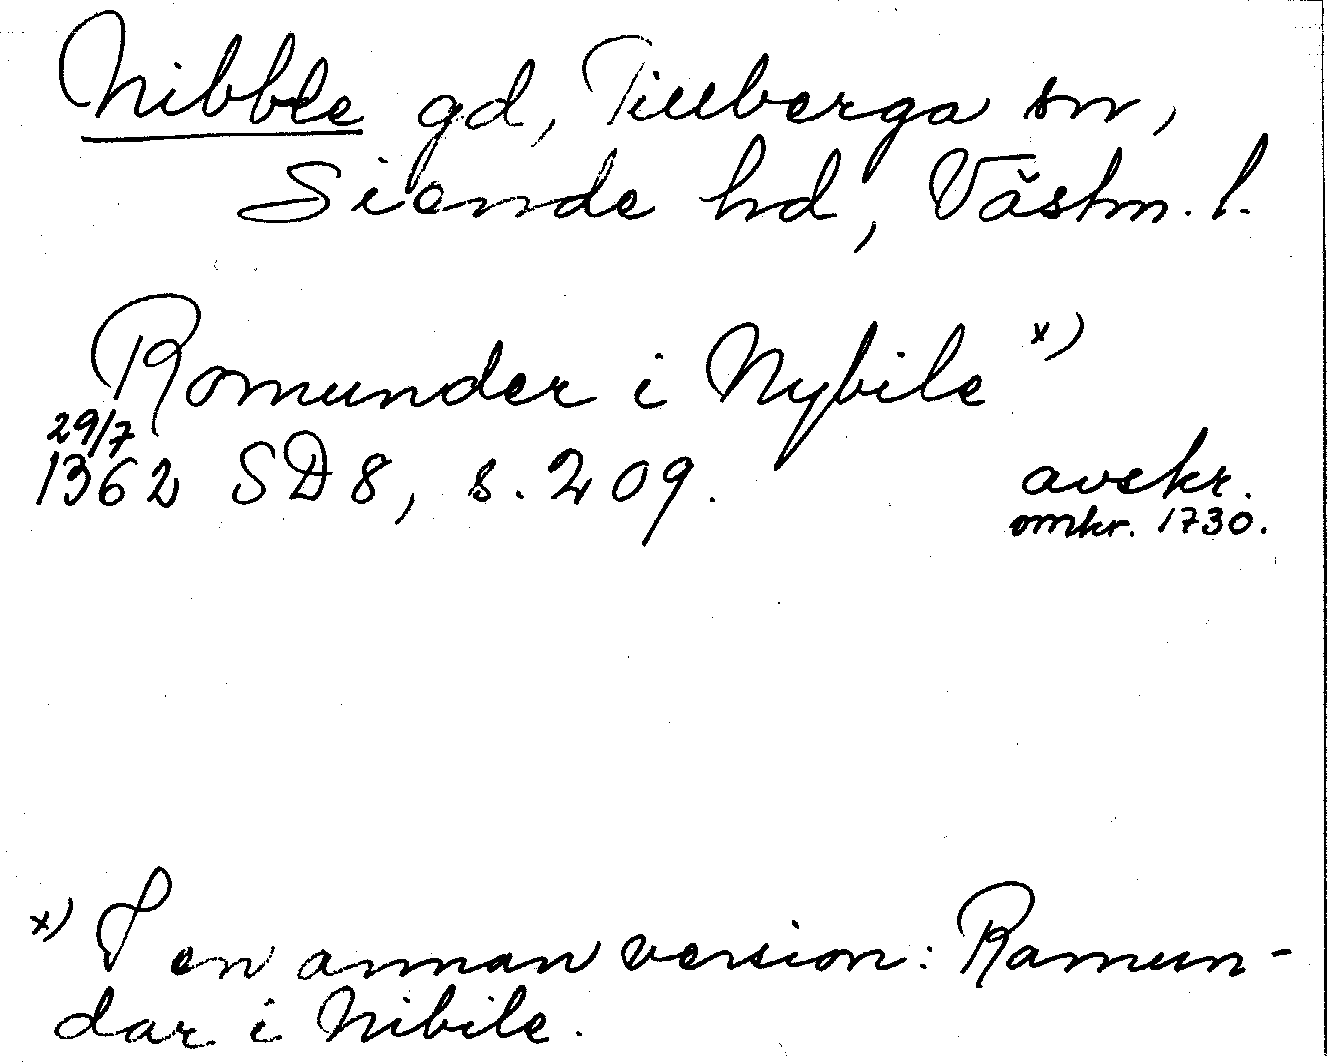 Nibble gd, Tillberga sn,
Siende hd, Västm. l.
Romunder i Nybile x)
29/7
1362 SD 8, s. 209. avskr.
omkr. 1730.
x) I en annan version: Ramun-
dar i Nibile.